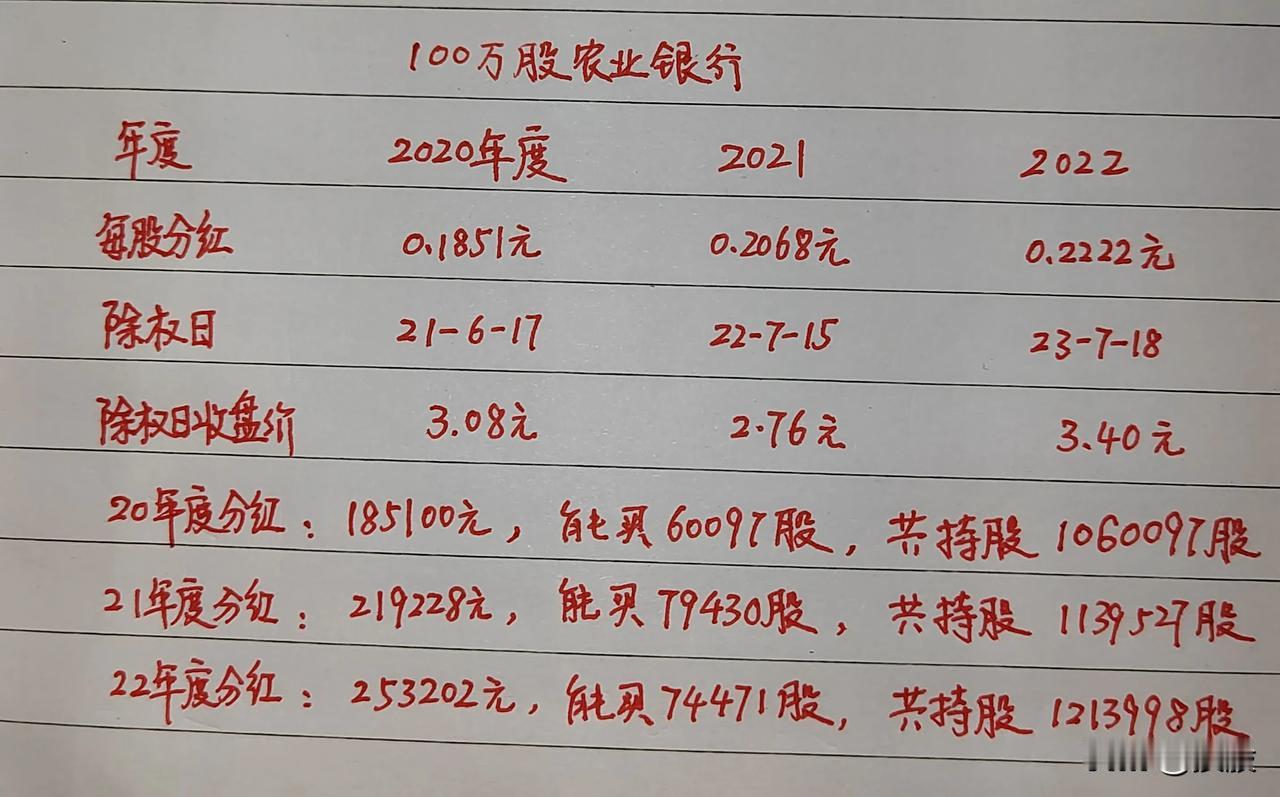 100万股农业银行
年度 2020年度 2021 2022
每股分红 0.1851元 0.2068元 0.2222元
除权日 21-6-17 22-7-15 23-7-18
除权日收盘价 3.08元 2.76元 3.40元
20年度分红：185100元，能买60097股，共持股1060097股
21年度分红：219228元，能买79430股，共持股1139527股
22年度分红：253202元，能买74471股，共持股1213998股